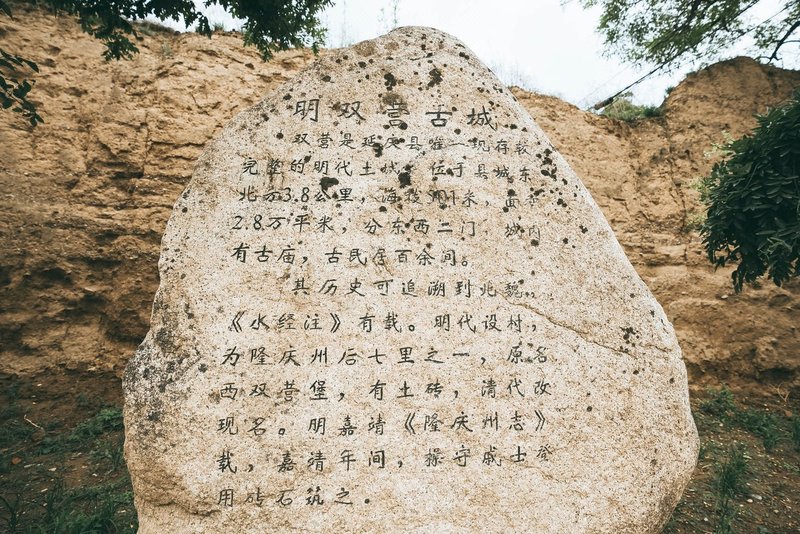 明双营古城
双营是延庆县唯一现存较
完整的明代土城，位于县城东
北方3.8公里，海拔 米，
2.8万平米，分东西二门，城内
有古庙，古民居百余间。
其历史可追溯到北魏，
《水经注》有载。明代设村，
为隆庆州后七里之一，原名
西双营堡，有土砖，清代改
现名。明嘉靖《隆庆州志》
载，嘉靖年间，操守戚士登
用砖石筑之。